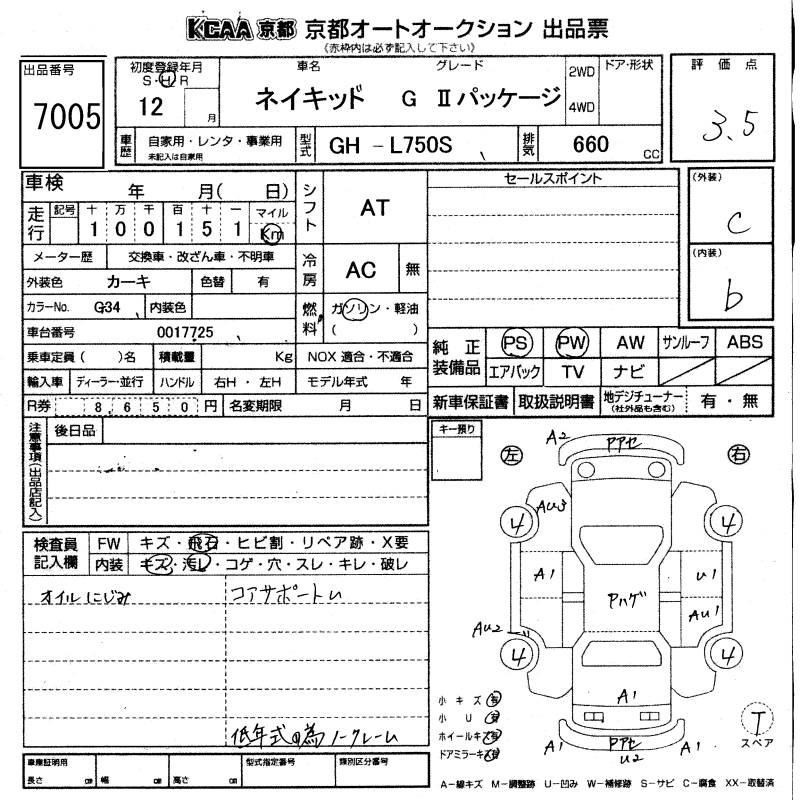 KCAA 京都 京都オートオークション 出品票
(赤枠内は必ず記入して下さい)
出品番号
7005
初度登録年月
S・H・R
12 月
車名 グレード
ネイキッド G Ⅱパッケージ
2WD
4WD
ドア・形状
評価点
3.5
車歴
自家用・レンタ・事業用
未記入は自家用
型式
GH - L750S
排気
660 CC
車検 年 月( 日)
走行
記号 十 万 千 百 十 一 マイル
1 0 0 1 5 1 Km
シフト
AT
セールスポイント
(外装)
C
(内装)
b
メーター歴 交換車・改ざん車・不明車
外装色 カーキ 色替 有
冷房
AC 無
カラーNo. G34 内装色
燃料
ガソリン・軽油
( )
車台番号 0017725
乗車定員( )名 積載量 Kg NOX 適合・不適合
輸入車 ディーラー・並行 ハンドル 右H・左H モデル年式 年
R券 8650円 名変期限 月 日
純正装備品
PS PW AW サンルーフ ABS
エアバック TV ナビ
新車保証書 取扱説明書 地デジチューナー 有・無
(社外品も含む)
注意事項(出品店記入)
後日品
キー預り
左 右
A2 Pアセ
AU3
4 4
A1 U1
AU1
Pハゲ
AU2
4 4
A1
A1 Pアセ A1
U2
T
スペア
検査員記入欄
FW キズ・飛石・ヒビ割・リペア跡・X要
内装 キズ・汚レ・コゲ・穴・スレ・キレ・破レ
オイルにじみ コアサポートU
低年式の為ノークレーム
小キズ 有
小U 有
ホイールキズ 有
ドアミラーキズ 有
車庫証明用
長さ cm 幅 cm 高さ cm
型式指定番号 類別区分番号
A-線キズ M-調整跡 U-凹み W-補修跡 S-サビ C-腐食 XX-取替済